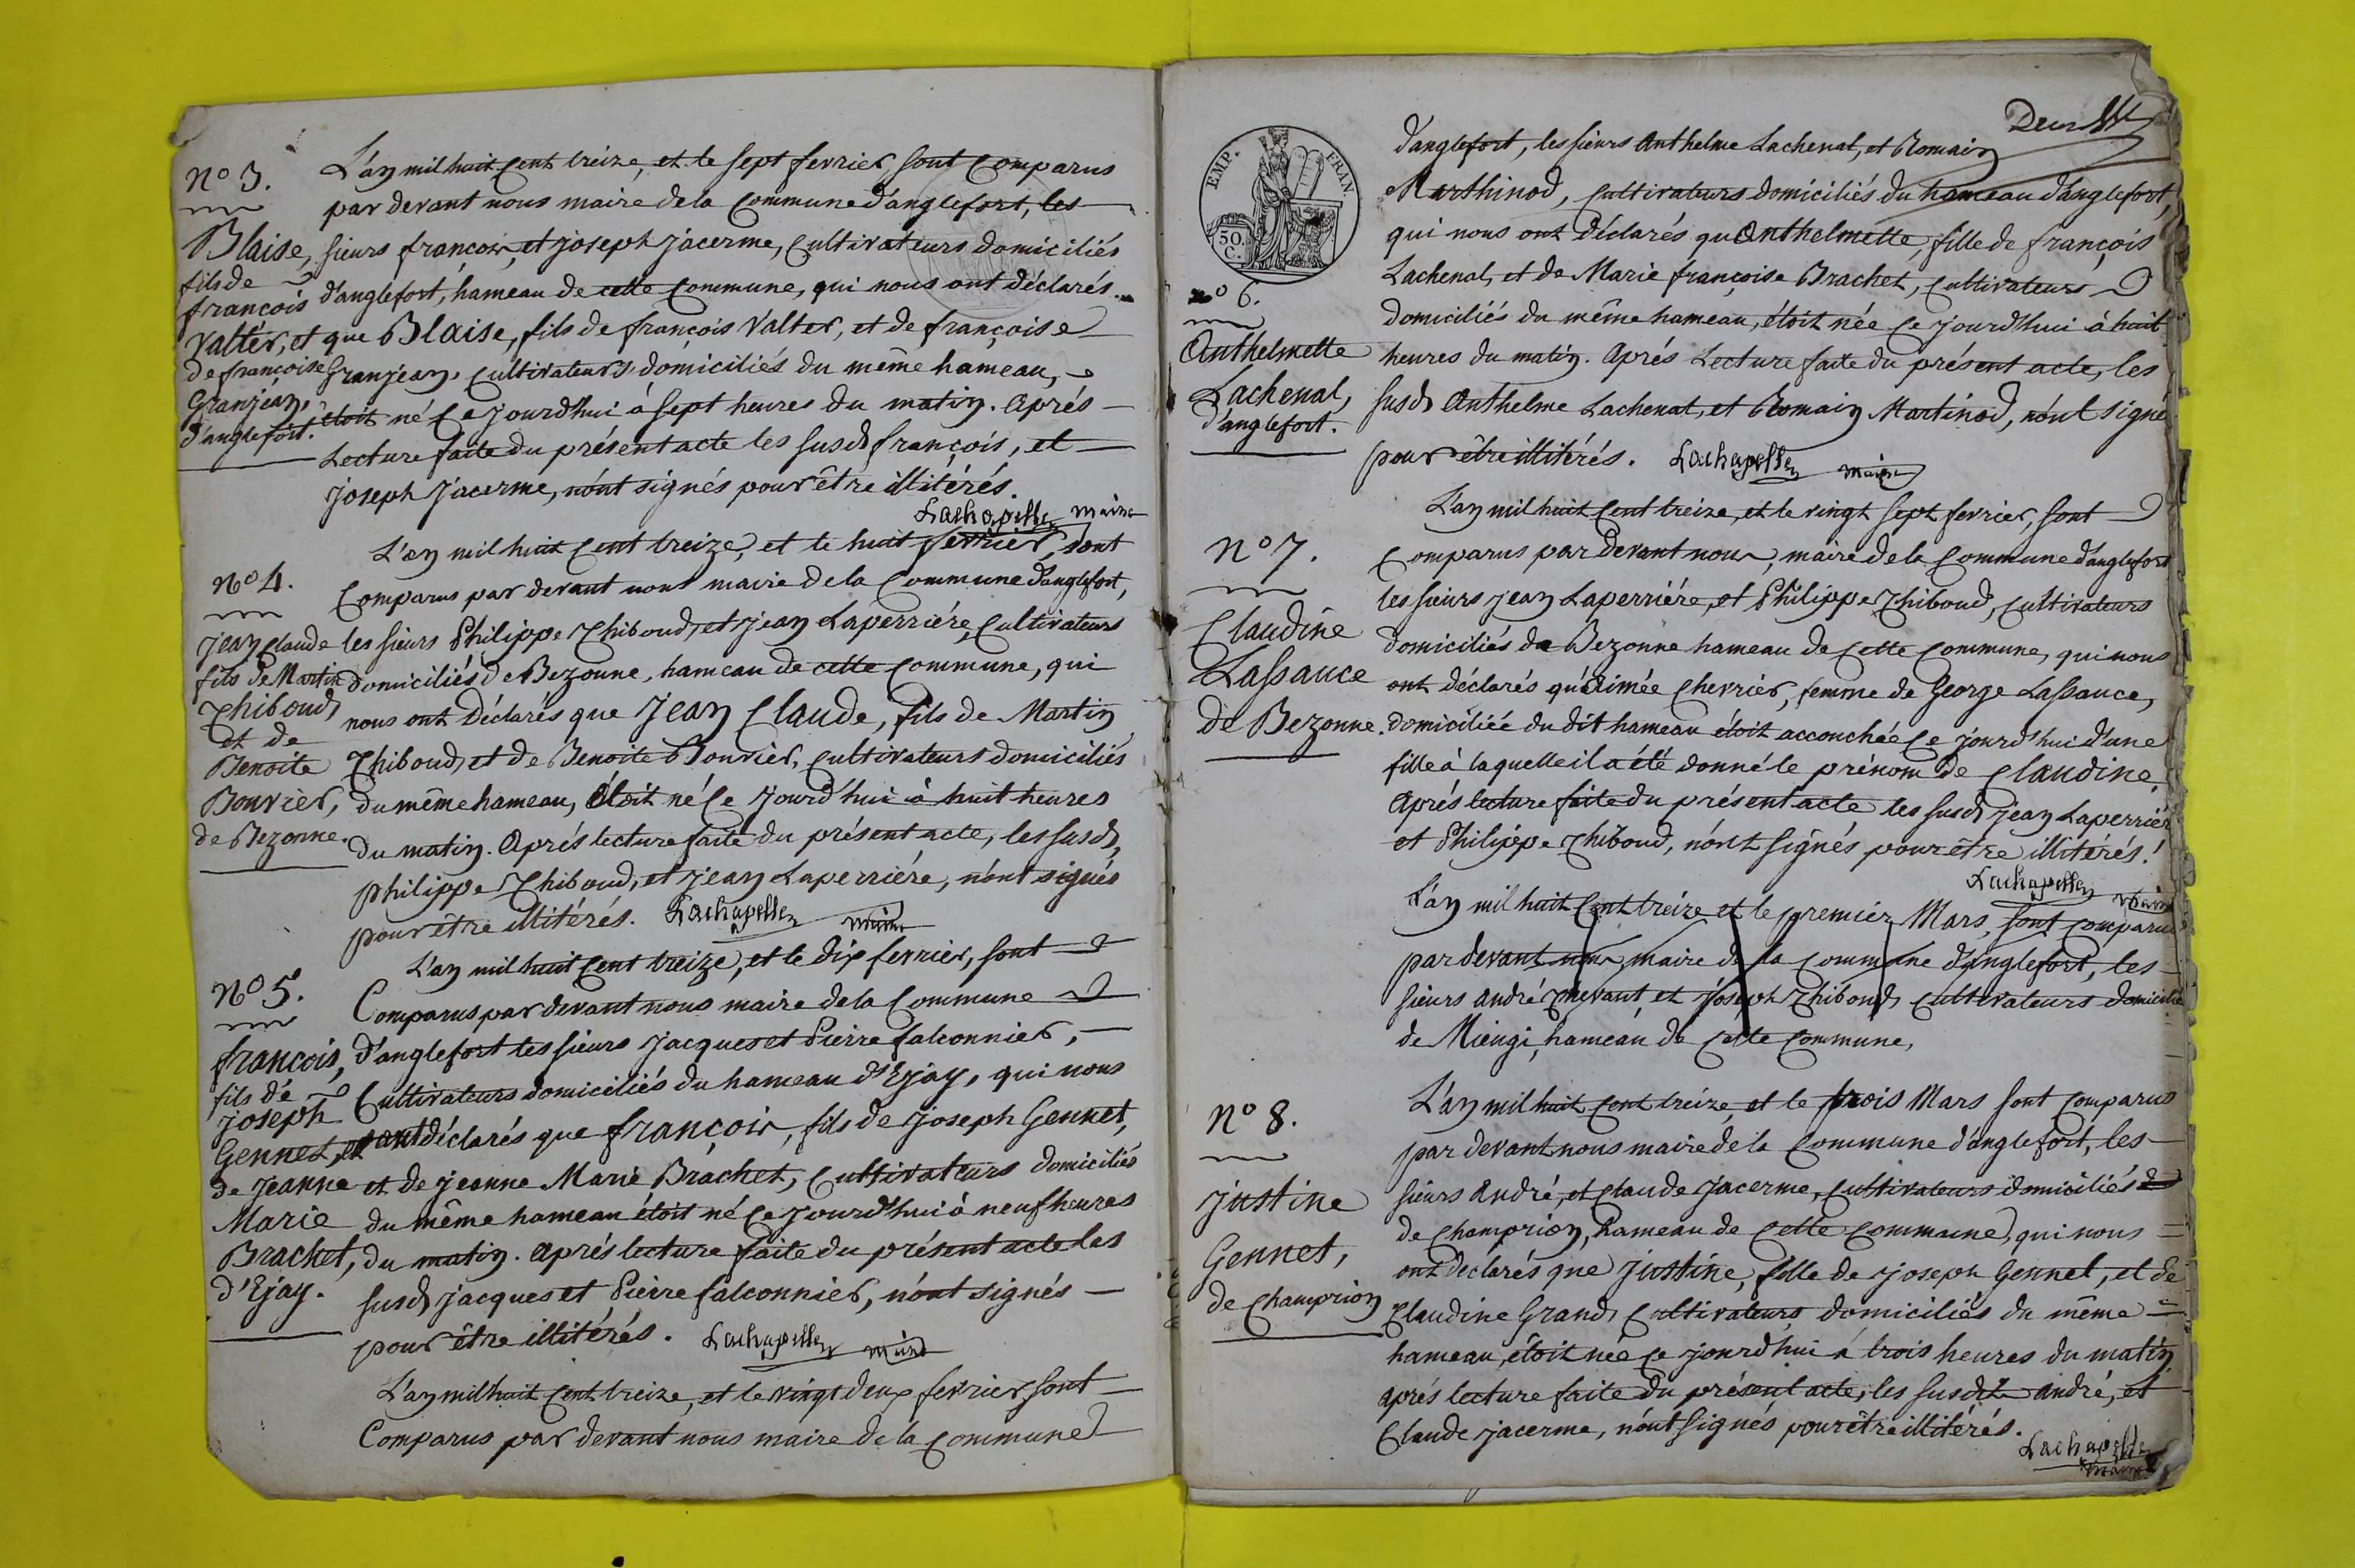 No 3.
Blaise,
fils de
françois
Valter, et
de françoise
Granjean,
d'anglefort.
L'an mil huit cent treize, et le sept fevrier, sont comparus
par devant nous maire de la commune d'anglefort, les
sieurs françois, et joseph jacerme, cultivateurs domiciliés
d'anglefort, hameau de cette commune, qui nous ont déclarés
que Blaise, fils de françois Valter, et de françoise
Granjean, cultivateurs domiciliés du même hameau,
étoit né ce jourd'hui à sept heures du matin. Aprés
Lecture faite du présent acte les susds françois, et
joseph jacerme, n'ont signés pour être illitérés.
Lachapelle maire
No 4.
jean claude
fils de Martin
Thiboud,
et de
Benoite
Bouvier,
de Bezonne.
L'an mil huit cent treize, et le huit fevrier, sont
Comparus par devant nous maire de la Commune d'anglefort,
les sieurs Philippe Thiboud, et jean Laperriére, Cultivateurs
domiciliés de Bezonne, hameau de cette commune, qui
nous ont déclarés que Jean Claude, fils de Martin
Thiboud, et de Benoite Bouvier, cultivateurs domiciliés
du même hameau, étoit né ce jourd'hui à huit heures
du matin. Aprés lecture faite du présent acte, les susds,
philippe Thiboud, et jean Laperriére, n'ont signés
pour être illitérés. Lachapelle maire
No 5.
françois,
fils de
joseph
Gennet, et
de jeanne
Marie
Brachet,
d'Ejay.
L'an mil huit cent treize, et le dix fevrier, sont
Comparus par devant nous maire de la Commune
d'anglefort les sieurs jacques et Pierre falconnier,
Cultivateurs domiciliés du hameau d'Ejay, qui nous
ont déclarés que françois, fils de joseph Gennet,
et de jeanne Marie Brachet, Cultivateurs domiciliés
du même hameau étoit né ce jourd'hui à neuf heures
du matin. aprés lecture faite du présent acte les
susds jacques et Pierre falconnier, n'ont signés
pour être illitérés. Lachapelle maire
L'an mil huit cent treize, et le vingt deux fevrier sont
Comparus par devant nous maire de la commune
Deux
EMP. FRAN.
50.
C.
d'anglefort, les sieurs Anthelme Lachenal, et Romain
Marthinod, cultivateurs domiciliés du hameau d'anglefort,
qui nous ont déclarés qu'Anthelmette, fille de françois
Lachenal, et de Marie françoise Brachet, cultivateurs
domiciliés du même hameau, étoit née ce jourd'hui à huit
heures du matin. Aprés Lecture faite du présent acte, les
susds Anthelme Lachenal, et Romain Martinod, n'ont signé
pour être illitérés. Lachapelle maire
no 6.
Anthelmette
Lachenal,
d'anglefort.
No 7.
Claudine
Lassauce
de Bezonne.
L'an mil huit cent treize, et le vingt sept fevrier, sont
Comparus par devant nous, maire de la Commune d'anglefort
les sieurs jean Laperriére, et Philippe Thiboud, cultivateurs
domiciliés de Bezonne hameau de cette commune, qui nous
ont déclarés qu'Aimée Chevrier, femme de George Lassauce,
domiciliée du dit hameau étoit accouchée ce jourd'hui d'une
fille à laquelle il a été donné le prénom de Claudine.
Aprés lecture faite du présent acte les susds jean Laperriér
et Philippe Thiboud, n'ont signés pour être illitérés.
Lachapelle maire
L'an mil huit cent treize et le premier Mars, sont comparus
par devant nous, maire de la commune d'anglefort, les
sieurs andré et joseph Thiboud, cultivateurs domicilié
de Miengi, hameau de cette commune,
No 8.
justine
Gennet,
de Champrion
L'an mil huit cent treize, et le trois Mars sont comparus
par devant nous maire de la Commune d'anglefort, les
sieurs André, et Claude Jacerme, cultivateurs domiciliés
de Champrion, hameau de cette commune, qui nous
ont déclarés que justine, fille de joseph Gennet, et de
Claudine Grand, cultivateurs domiciliés du même
hameau, étoit née ce jourd'hui à trois heures du matin
aprés lecture faite du présent acte, les susdits andré, et
Claude jacerme, n'ont signés pour être illitérés.
Lachapelle
maire